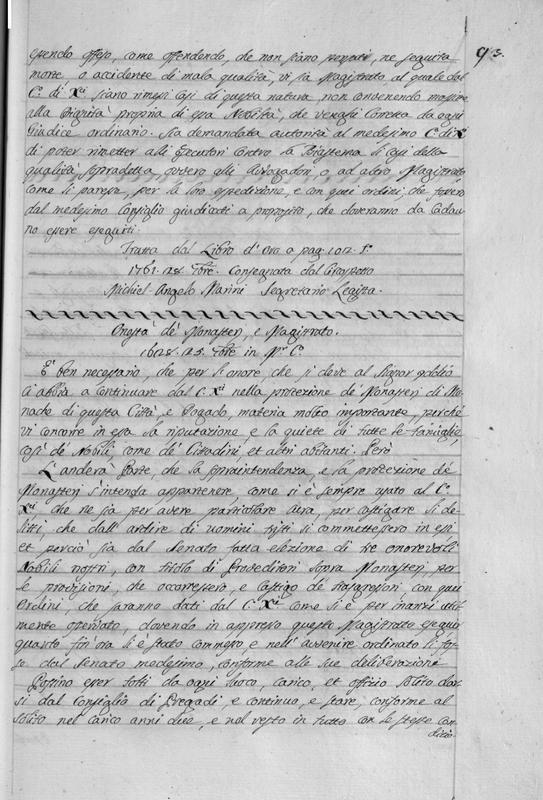 93.
essendo offeso, come offendendo, che non siano privati, ne seguita
morte o accidente di mala qualità, vi sia Magistrato al quale dal
C.º di X.ci siano rimessi casi di questa natura, non convenendo massime
alla Dignità propria di essa Nobiltà, che venghi corretta da ogni
Giudice ordinario. Sia demandata autorità al medesimo C.º di X.ci
di poter rimetter alli Esecutori Contro la Biastema li casi della
qualità sopradetta, ovvero alli Avogadori, o ad altro Magistrato
come li parerà, per la loro espedizione, e con quei ordini, che fossero
dal medesimo Consiglio giudicati a proposito, che doveranno da cadau
no essere eseguiti.
Tratta dal Libro d'Oro a pag. 102. t.º
1761. 28. Consegnata dal Circospetto
Michiel Angelo Marini Segretario Leggista.
Onestà de' Monasteri, e Magistrato.
1628. 25. in M.r C.º
E' ben necessario, che per l'onore che si deve al Signor Iddio
si abbia a continuare dal C. X.ci nella protezione de' Monasteri di Mo-
nache di questa Città, e Dogado, materia molto importante, perchè
vi concorre in essa la riputazione, e la quiete di tutte le famiglie,
così de' Nobili, come de' Cittadini, et altri abitanti. Però
L'anderà Parte, che la sopraintendenza, e la protezione de'
Monasteri s'intenda appartenere, come si è sempre usato al C.º
X.ci, che ne sia per avere particolare cura, per castigare li de-
litti, che dall'ardire di uomini tristi si commettessero in essi
et perciò sia dal Senato fatta elezione di tre onorevoli
Nobili nostri, con titolo di Proveditori sopra Monasteri, per
le provisioni, che occorressero, e castigo de' trasgressori con quei
Ordini, che saranno dati dal C. X.ci come si è per inanzi util-
mente operato, dovendo in appresso questo Magistrato eseguir
quanto fin'ora li è stato commesso, e nell'avvenire ordinato li fos-
se dal Senato medesimo, conforme alle sue deliberazioni
Possino esser tolti da ogni luoco, carico, et offizio solito dar-
si dal Consiglio di Pregadi, e continuo, e stare, conforme al
solito nel carico anni due, e nel resto in tutto con le stesse con-
dizio-